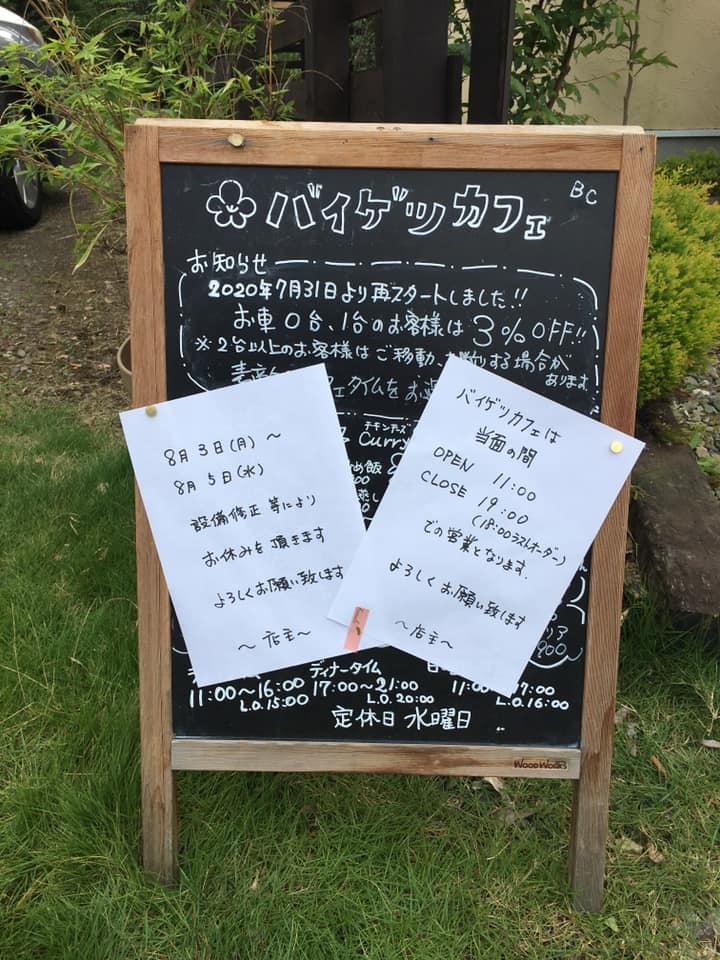 バイゲツカフェ
BC
お知らせ
2020年7月31日より再スタートしました!!
お車0台、1台のお客様は 3%OFF!!
※2台以上のお客様はご移動、 する場合が
あります
ェタイムをお
チキン
Curry
8月3日(月)〜
8月5日(水)
設備修正等により
お休みを頂きます
よろしくお願い致します
〜店主〜
バイゲツカフェは
当面の間
OPEN 11:00
CLOSE 19:00
(18:00ラストオーダー)
での営業となります.
よろしくお願い致します
〜店主〜
ディナータイム
11:00〜16:00 17:00〜21:00
L.O.15:00 L.O.20:00 L.O.16:00
定休日 水曜日
WOOD WORKS